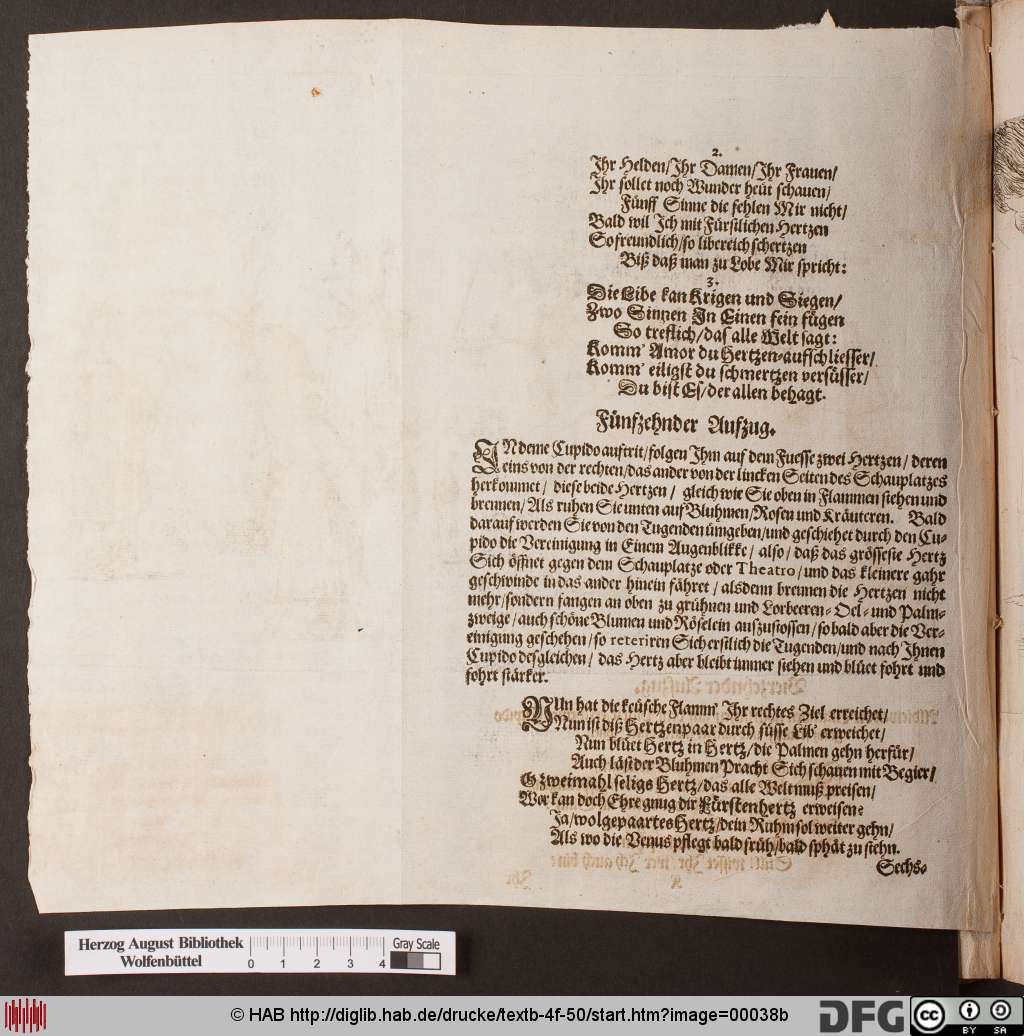 2.
Ihr Helden/Ihr Damen/Ihr Frauen/
Ihr sollet noch Wunder heüt schauen/
Fünff Sinne die fehlen Mir nicht/
Bald wil Ich mit Fürstlichen Hertzen
So freundlich/so libereich schertzen
Biß daß man zu Lobe Mir spricht:
3.
Die Libe kan Krigen und Siegen/
Zwo Sinnen In Einen fein fügen
So treflich/das alle Welt sagt:
Komm' Amor du Hertzen-aufschliesser/
Komm' eiligst du schmertzen versüsser/
Du bist Es/der allen behagt.
Fünfzehnder Aufzug.
INdeme Cupido auftrit/folgen Ihm auf dem Fuesse zwei Hertzen/ deren
eins von der rechten/das ander von der lincken Seiten des Schauplatzes
herkommet/ diese beide Hertzen/ gleich wie Sie oben in Flammen stehen und
brennen/Als ruhen Sie unten auf Bluhmen/Rosen und Kräuteren. Bald
darauf werden Sie von den Tugenden ümgeben/und geschiehet durch den Cu-
pido die Vereinigung in Einem Augenblikke/ also/ daß das grösseste Hertz
Sich öffnet gegen dem Schauplatze oder Theatro/und das kleinere gahr
geschwinde in das ander hinein fähret/alsdenn brennen die Hertzen nicht
mehr/sondern fangen an oben zu grühnen und Lorbeeren- Oel- und Palm-
zweige/auch schöne Blumen und Röselein auszustossen/so bald aber die Ver-
einigung geschehen/so reteriren Sich erstlich die Tugenden/und nach Ihnen
Cupido desgleichen/ das Hertz aber bleibt immer stehen und blüet fohrt und
fohrt stärker.
NUn hat die keüsche Flamm' Ihr rechtes Ziel erreichet/
Nun ist diß Hertzenpaar durch süsse Lib' erweichet/
Nun blüet Hertz in Hertz/die Palmen gehn herfür/
Auch läst der Bluhmen Pracht Sich schauen mit Begier/
O zweimahl seligs Hertz/das alle Welt muß preisen/
Wor kan doch Ehre gnug dir Fürstenhertz erweisen?
Ja/wolgepaartes Hertz/dein Ruhm sol weiter gehn/
Als wo die Venus pflegt bald früh/bald sphät zu stehn.
Sechs-
Herzog August Bibliothek
Wolfenbüttel
0 1 2 3 4
Gray Scale
© HAB http://diglib.hab.de/drucke/textb-4f-50/start.htm?image=00038b
DFG
cc BY SA